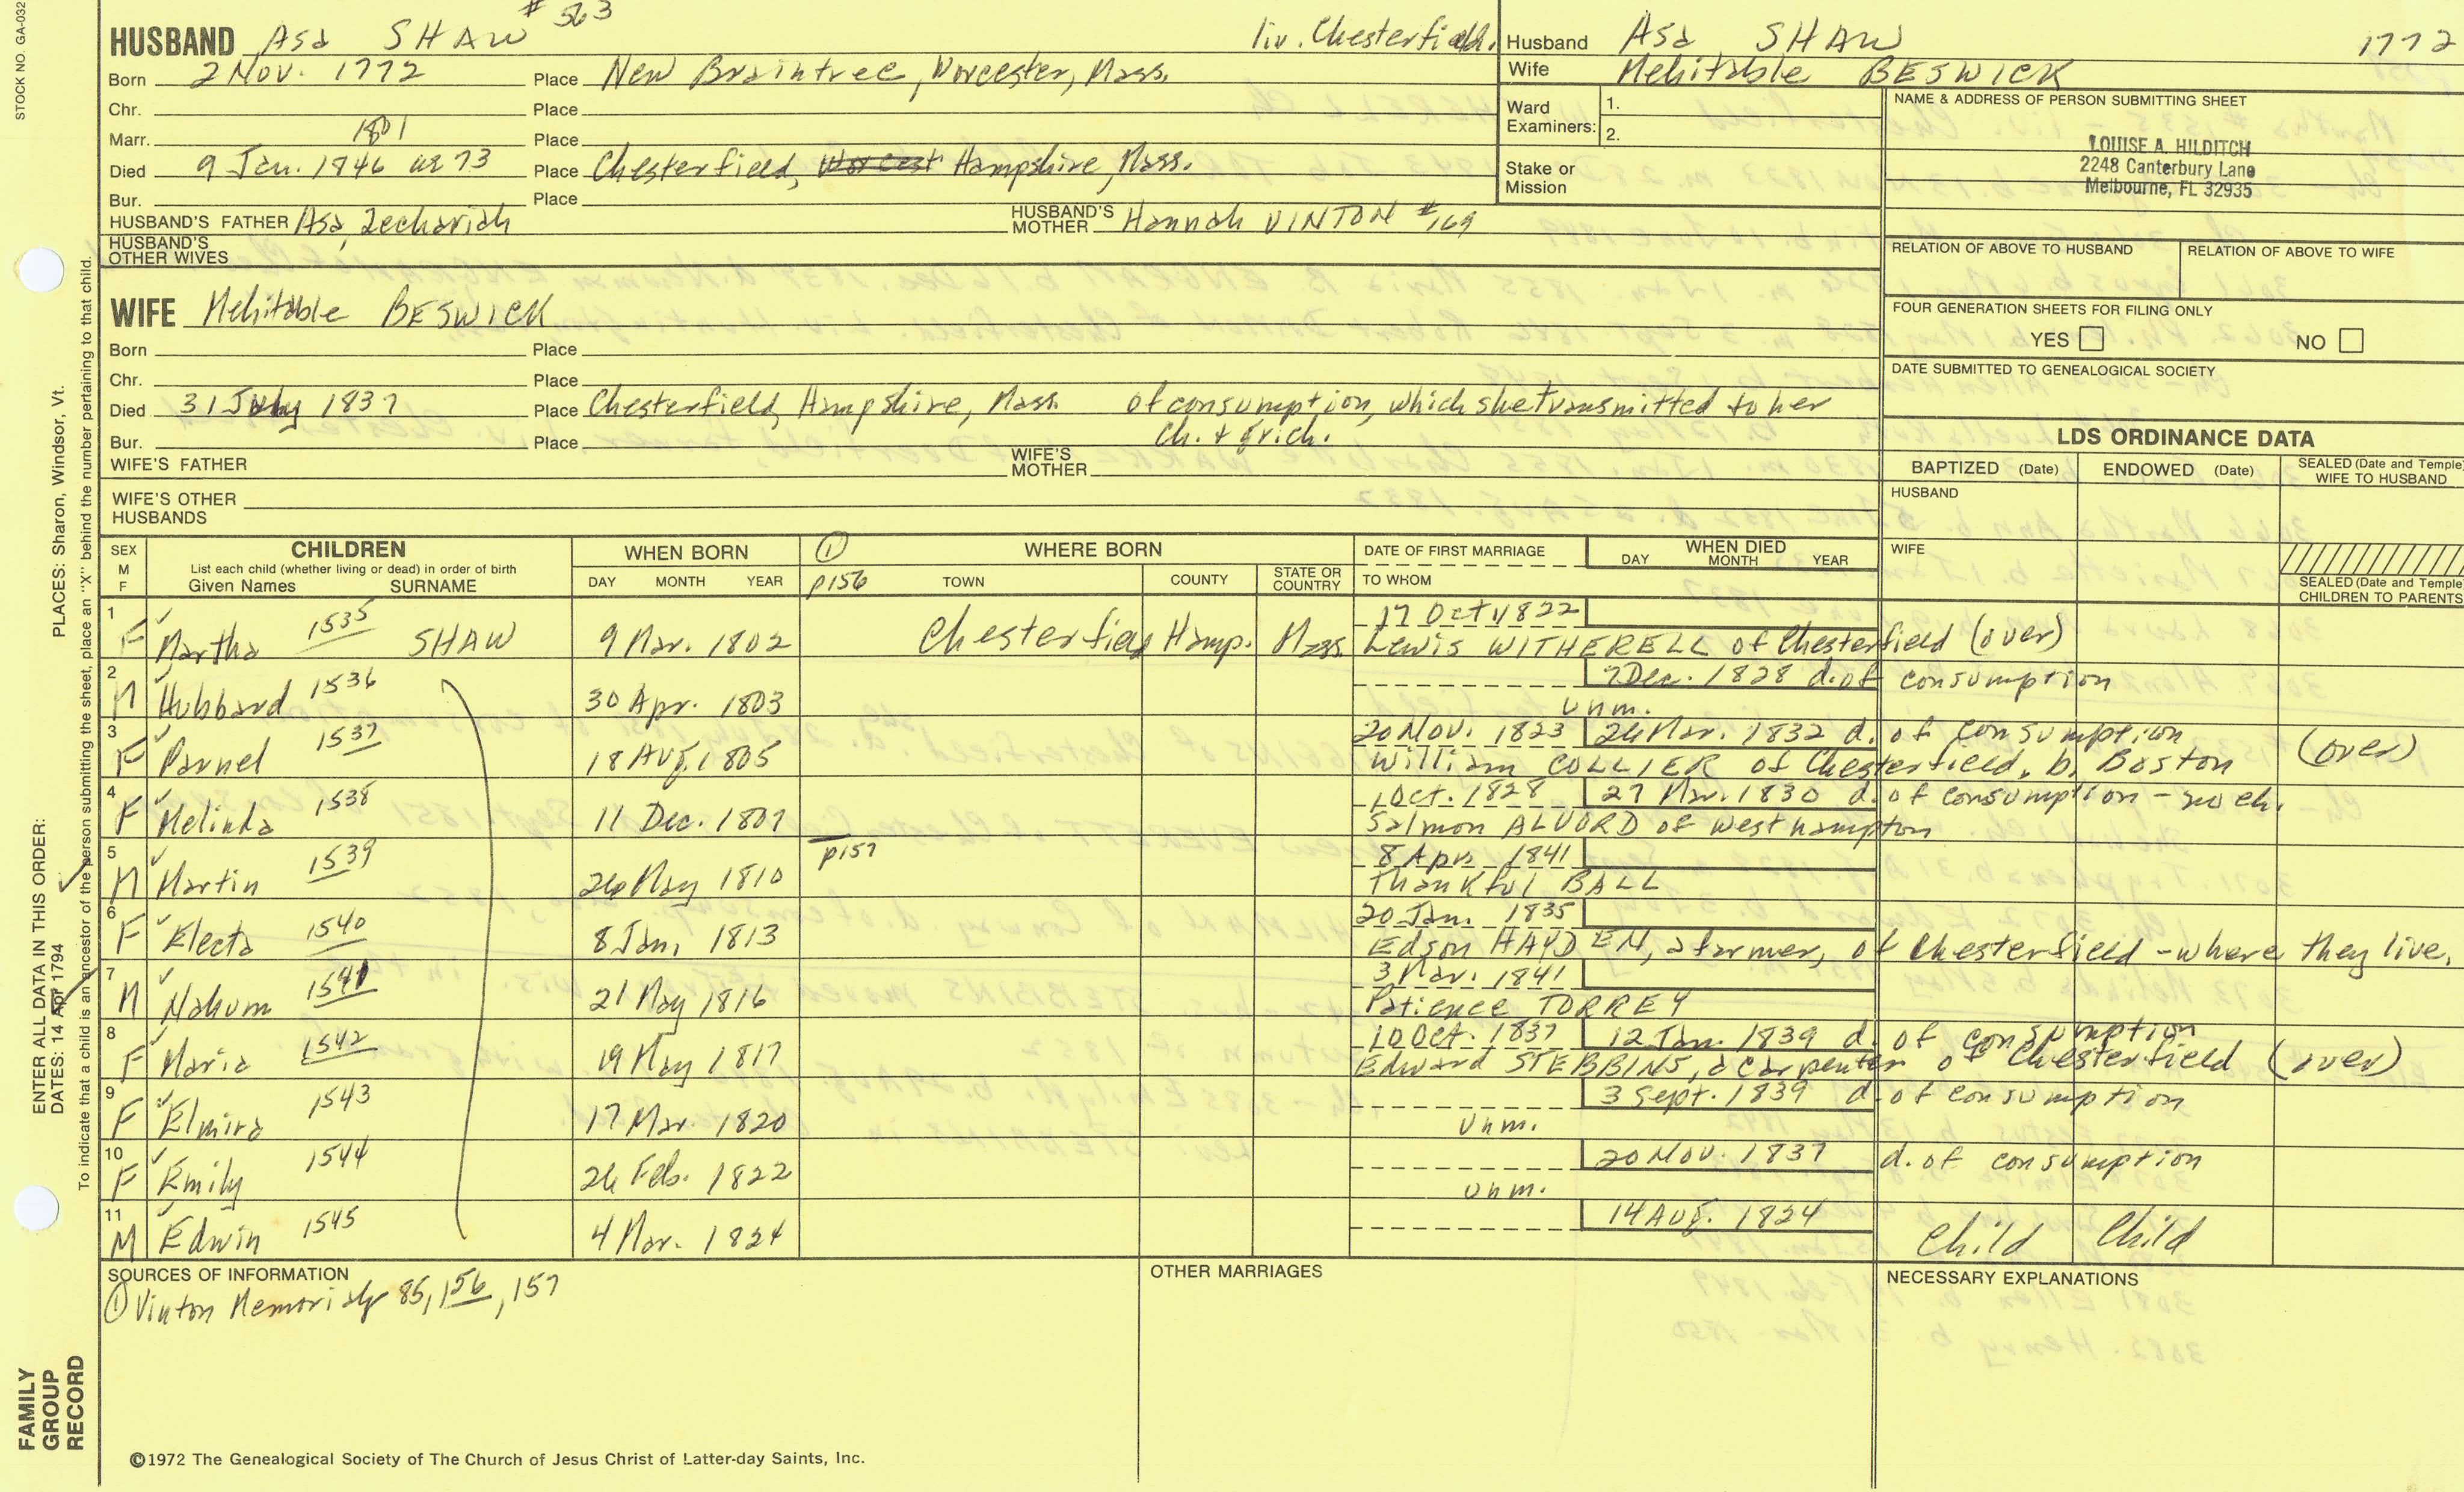 STOCK NO. GA-032
# 563
HUSBAND Asa SHAW liv. Chesterfield.
Born 2 Nov. 1772 Place New Braintree, Worcester, Mass.
Chr. Place
Marr. 1801 Place
Died 9 Jan. 1846 ae 73 Place Chesterfield, Worcest Hampshire, Mass.
Bur. Place
HUSBAND'S FATHER Asa, Zechariah HUSBAND'S MOTHER Hannah VINTON #169
HUSBAND'S OTHER WIVES
WIFE Mehitable BESWICK
Born Place
Chr. Place
Died 31 July 1837 Place Chesterfield, Hampshire, Mass. of consumption, which she transmitted to her
ch. & grich.
Bur. Place
WIFE'S FATHER WIFE'S MOTHER
WIFE'S OTHER HUSBANDS
Husband Asa SHAW 1772
Wife Mehitable BESWICK
Ward Examiners: 1.
2.
Stake or Mission
NAME & ADDRESS OF PERSON SUBMITTING SHEET
LOUISE A. HILDITCH
2248 Canterbury Lane
Melbourne, FL 32935
RELATION OF ABOVE TO HUSBAND RELATION OF ABOVE TO WIFE
FOUR GENERATION SHEETS FOR FILING ONLY
YES NO
DATE SUBMITTED TO GENEALOGICAL SOCIETY
LDS ORDINANCE DATA
BAPTIZED (Date) ENDOWED (Date) SEALED (Date and Temple) WIFE TO HUSBAND
HUSBAND
WIFE
SEALED (Date and Temple) CHILDREN TO PARENTS
SEX M F CHILDREN List each child (whether living or dead) in order of birth Given Names SURNAME
WHEN BORN DAY MONTH YEAR
① p156 WHERE BORN TOWN COUNTY STATE OR COUNTRY
DATE OF FIRST MARRIAGE TO WHOM WHEN DIED DAY MONTH YEAR
1 F Martha 1535 SHAW 9 Mar. 1802 Chesterfield Hamp. Mass. 17 Oct 1822
Lewis WITHERELL of Chesterfield (over)
2 M Hubbard 1536 30 Apr. 1803 7 Dec. 1828 d. of consumption
unm.
3 F Parnel 1537 18 Aug. 1805 20 Nov. 1823 26 Mar. 1832 d. of consumption
William COLLIER of Chesterfield, b. Boston (over)
4 F Melinda 1538 11 Dec. 1807 1 Oct. 1828 27 Mar. 1830 d. of consumption - no ch.
Salmon ALVORD of Westhampton
5 M Martin 1539 26 May 1810 p157 8 Apr. 1841
Thankful BALL
6 F Electa 1540 8 Jan. 1813 20 Jan. 1835
Edson HAYDEN, a farmer, of Chesterfield - where they live.
7 M Nahum 1541 21 May 1816 3 Mar. 1841
Patience TORREY
8 F Maria 1542 19 May 1817 10 Oct. 1837 12 Jan. 1839 d. of consumption
Edward STEBBINS, a carpenter of Chesterfield (over)
9 F Elmira 1543 17 Mar. 1820 3 Sept. 1839 d. of consumption
unm.
10 F Emily 1544 26 Feb. 1822 20 Nov. 1837 d. of consumption
unm.
11 M Edwin 1545 4 Mar. 1824 14 Aug. 1824 Child Child
SOURCES OF INFORMATION
① Vinton Memorial 85, 156, 157
OTHER MARRIAGES
NECESSARY EXPLANATIONS
©1972 The Genealogical Society of The Church of Jesus Christ of Latter-day Saints, Inc.
FAMILY GROUP RECORD
ENTER ALL DATA IN THIS ORDER:
DATES: 14 Apr 1794 PLACES: Sharon, Windsor, Vt.
To indicate that a child is an ancestor of the person submitting the sheet, place an "X" behind the number pertaining to that child.